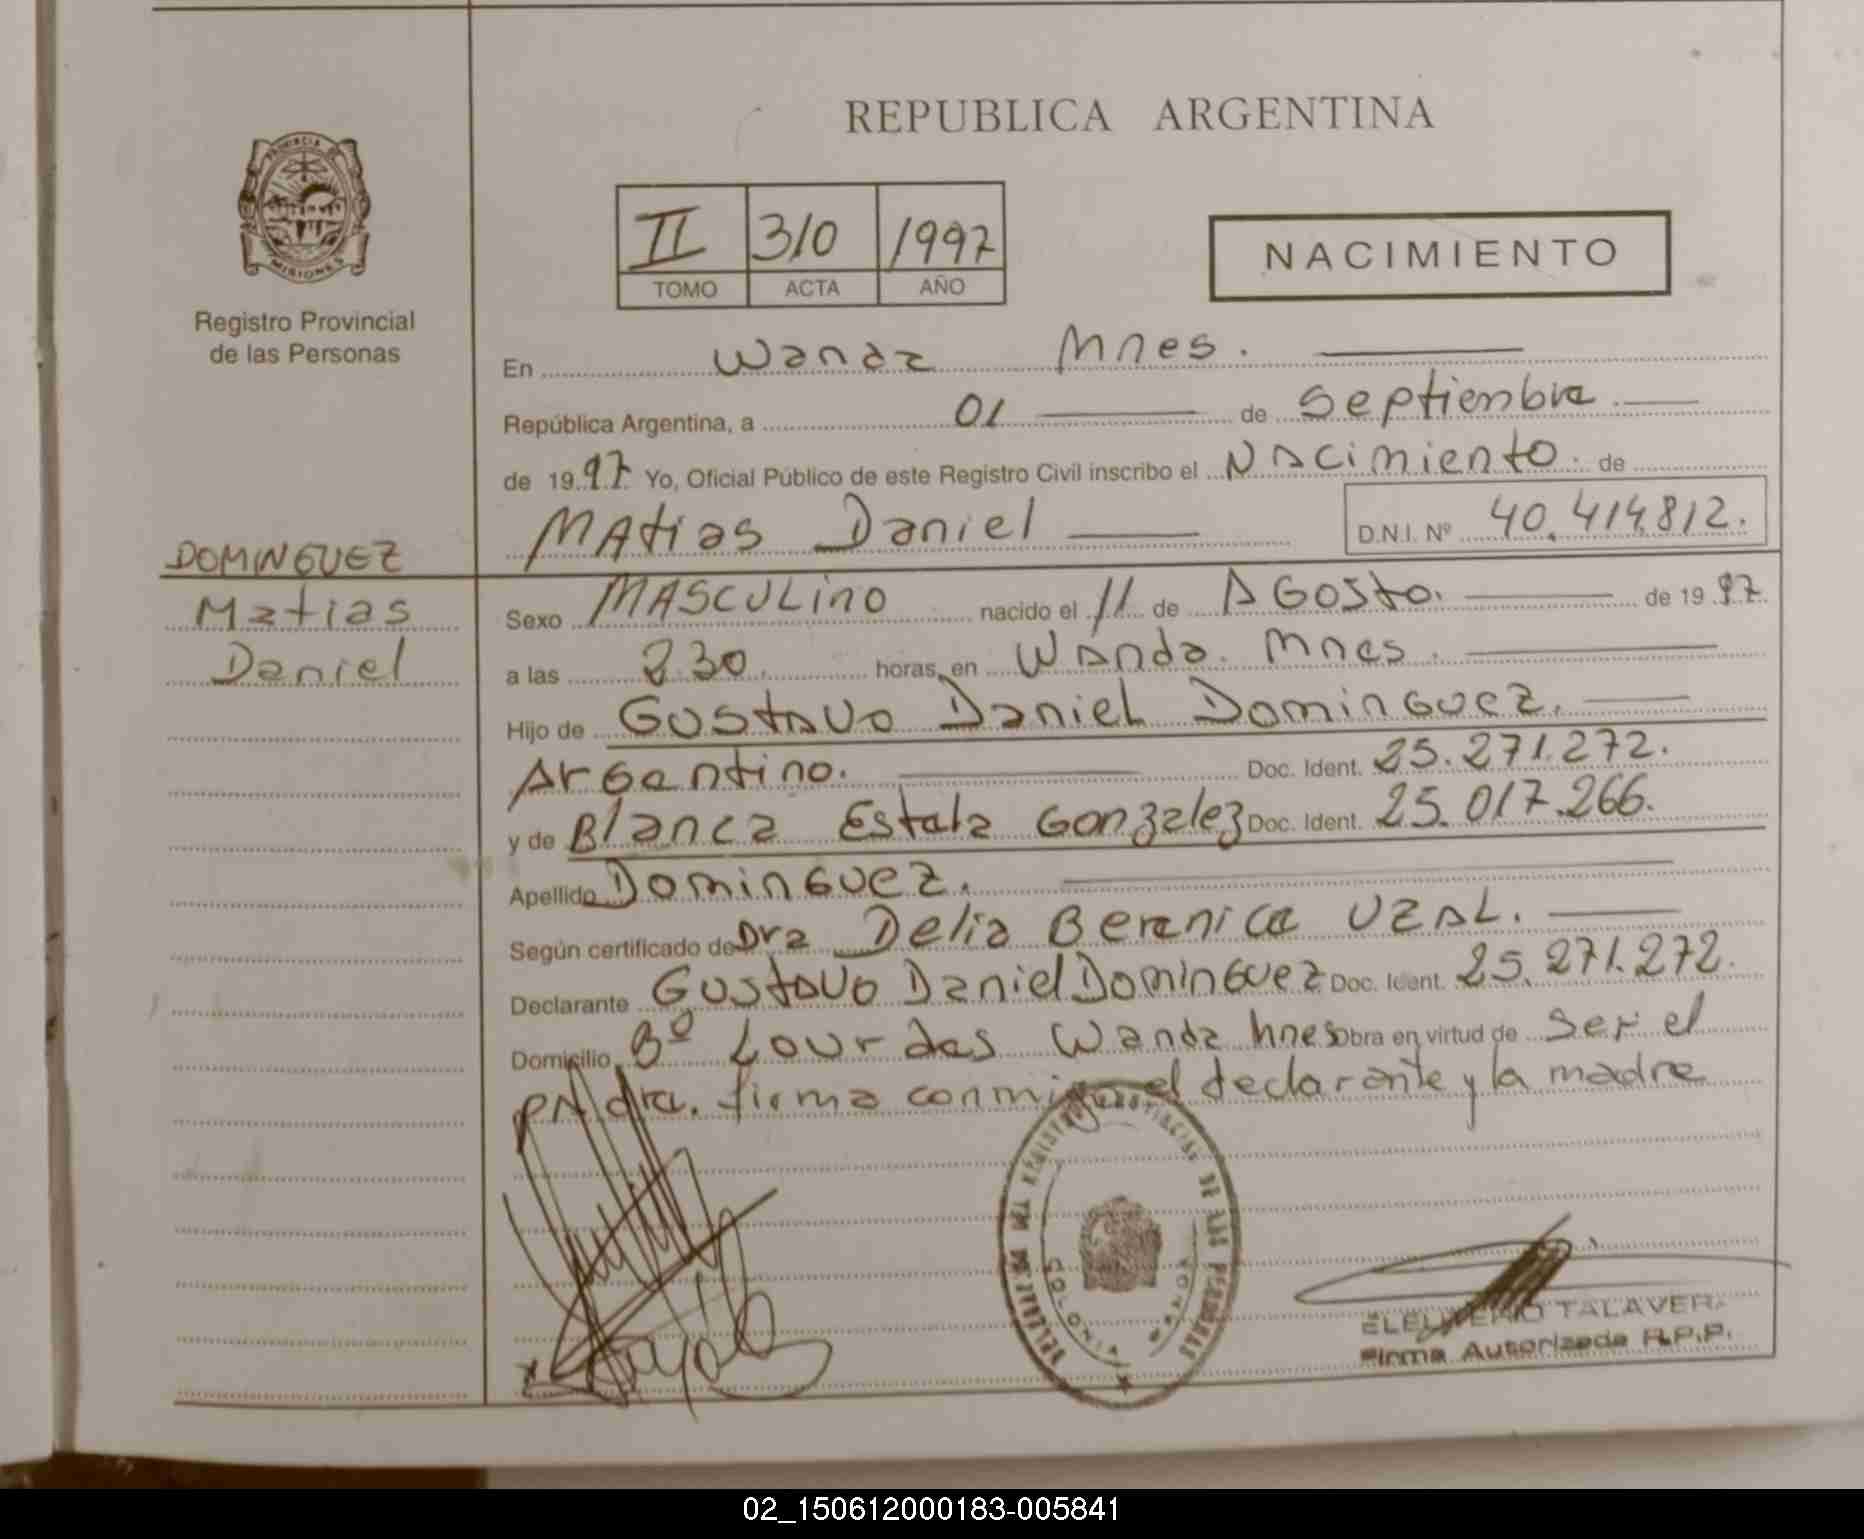 REPUBLICA ARGENTINA
PROVINCIA DE
MISIONES
Registro Provincial
de las Personas
II 310 1997
TOMO ACTA AÑO
NACIMIENTO
En Wanda Mnes.
República Argentina, a 01 de Septiembre
de 1997 Yo, Oficial Público de este Registro Civil inscribo el Nacimiento de
Matias Daniel D.N.I. Nº 40.414.812.
DOMINGUEZ
Matias
Daniel
Sexo MASCULino nacido el 11 de AGosto. de 1997.
a las 8.30. horas, en Wanda. Mnes.
Hijo de Gustavo Daniel Dominguez.
Argentino. Doc. Ident. 25.271.272.
y de Blanca Estela Gonzalez Doc. Ident. 25.017.266.
Apellido Dominguez.
Según certificado de Dra Delia Berenice UZAL.
Declarante Gustavo Daniel Dominguez Doc. Ident. 25.271.272.
Domicilio Bº Lourdes Wanda Mnes Obra en virtud de ser el
firma conmigo el declarante y la madre
COLONIA WANDA
TALAVERA
Firma Autorizada R.P.P.
02_150612000183-005841